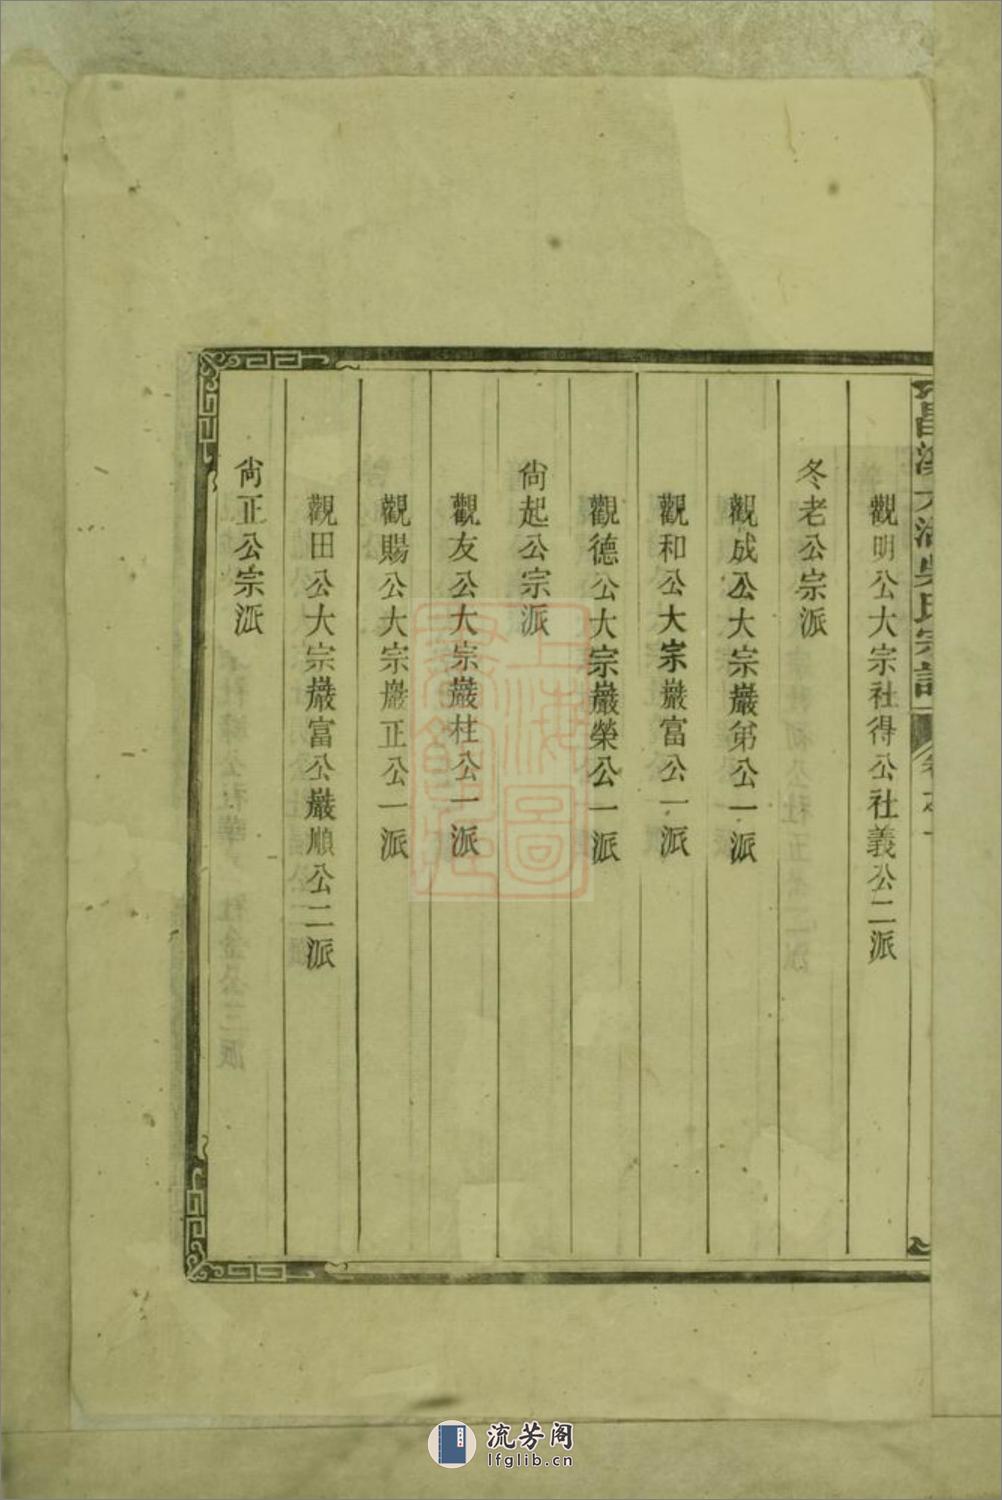 昌溪太湖吳氏宗譜
觀明公大宗社得公社義公二派
冬老公宗派
觀成公大宗巖第公一派
觀和公大宗巖富公一派
觀德公大宗巖榮公一派
尙起公宗派
觀友公大宗巖柱公一派
觀賜公大宗巖正公一派
觀田公大宗巖富公巖順公二派
尙正公宗派
上海圖書館藏
流芳阁
lfglib.cn